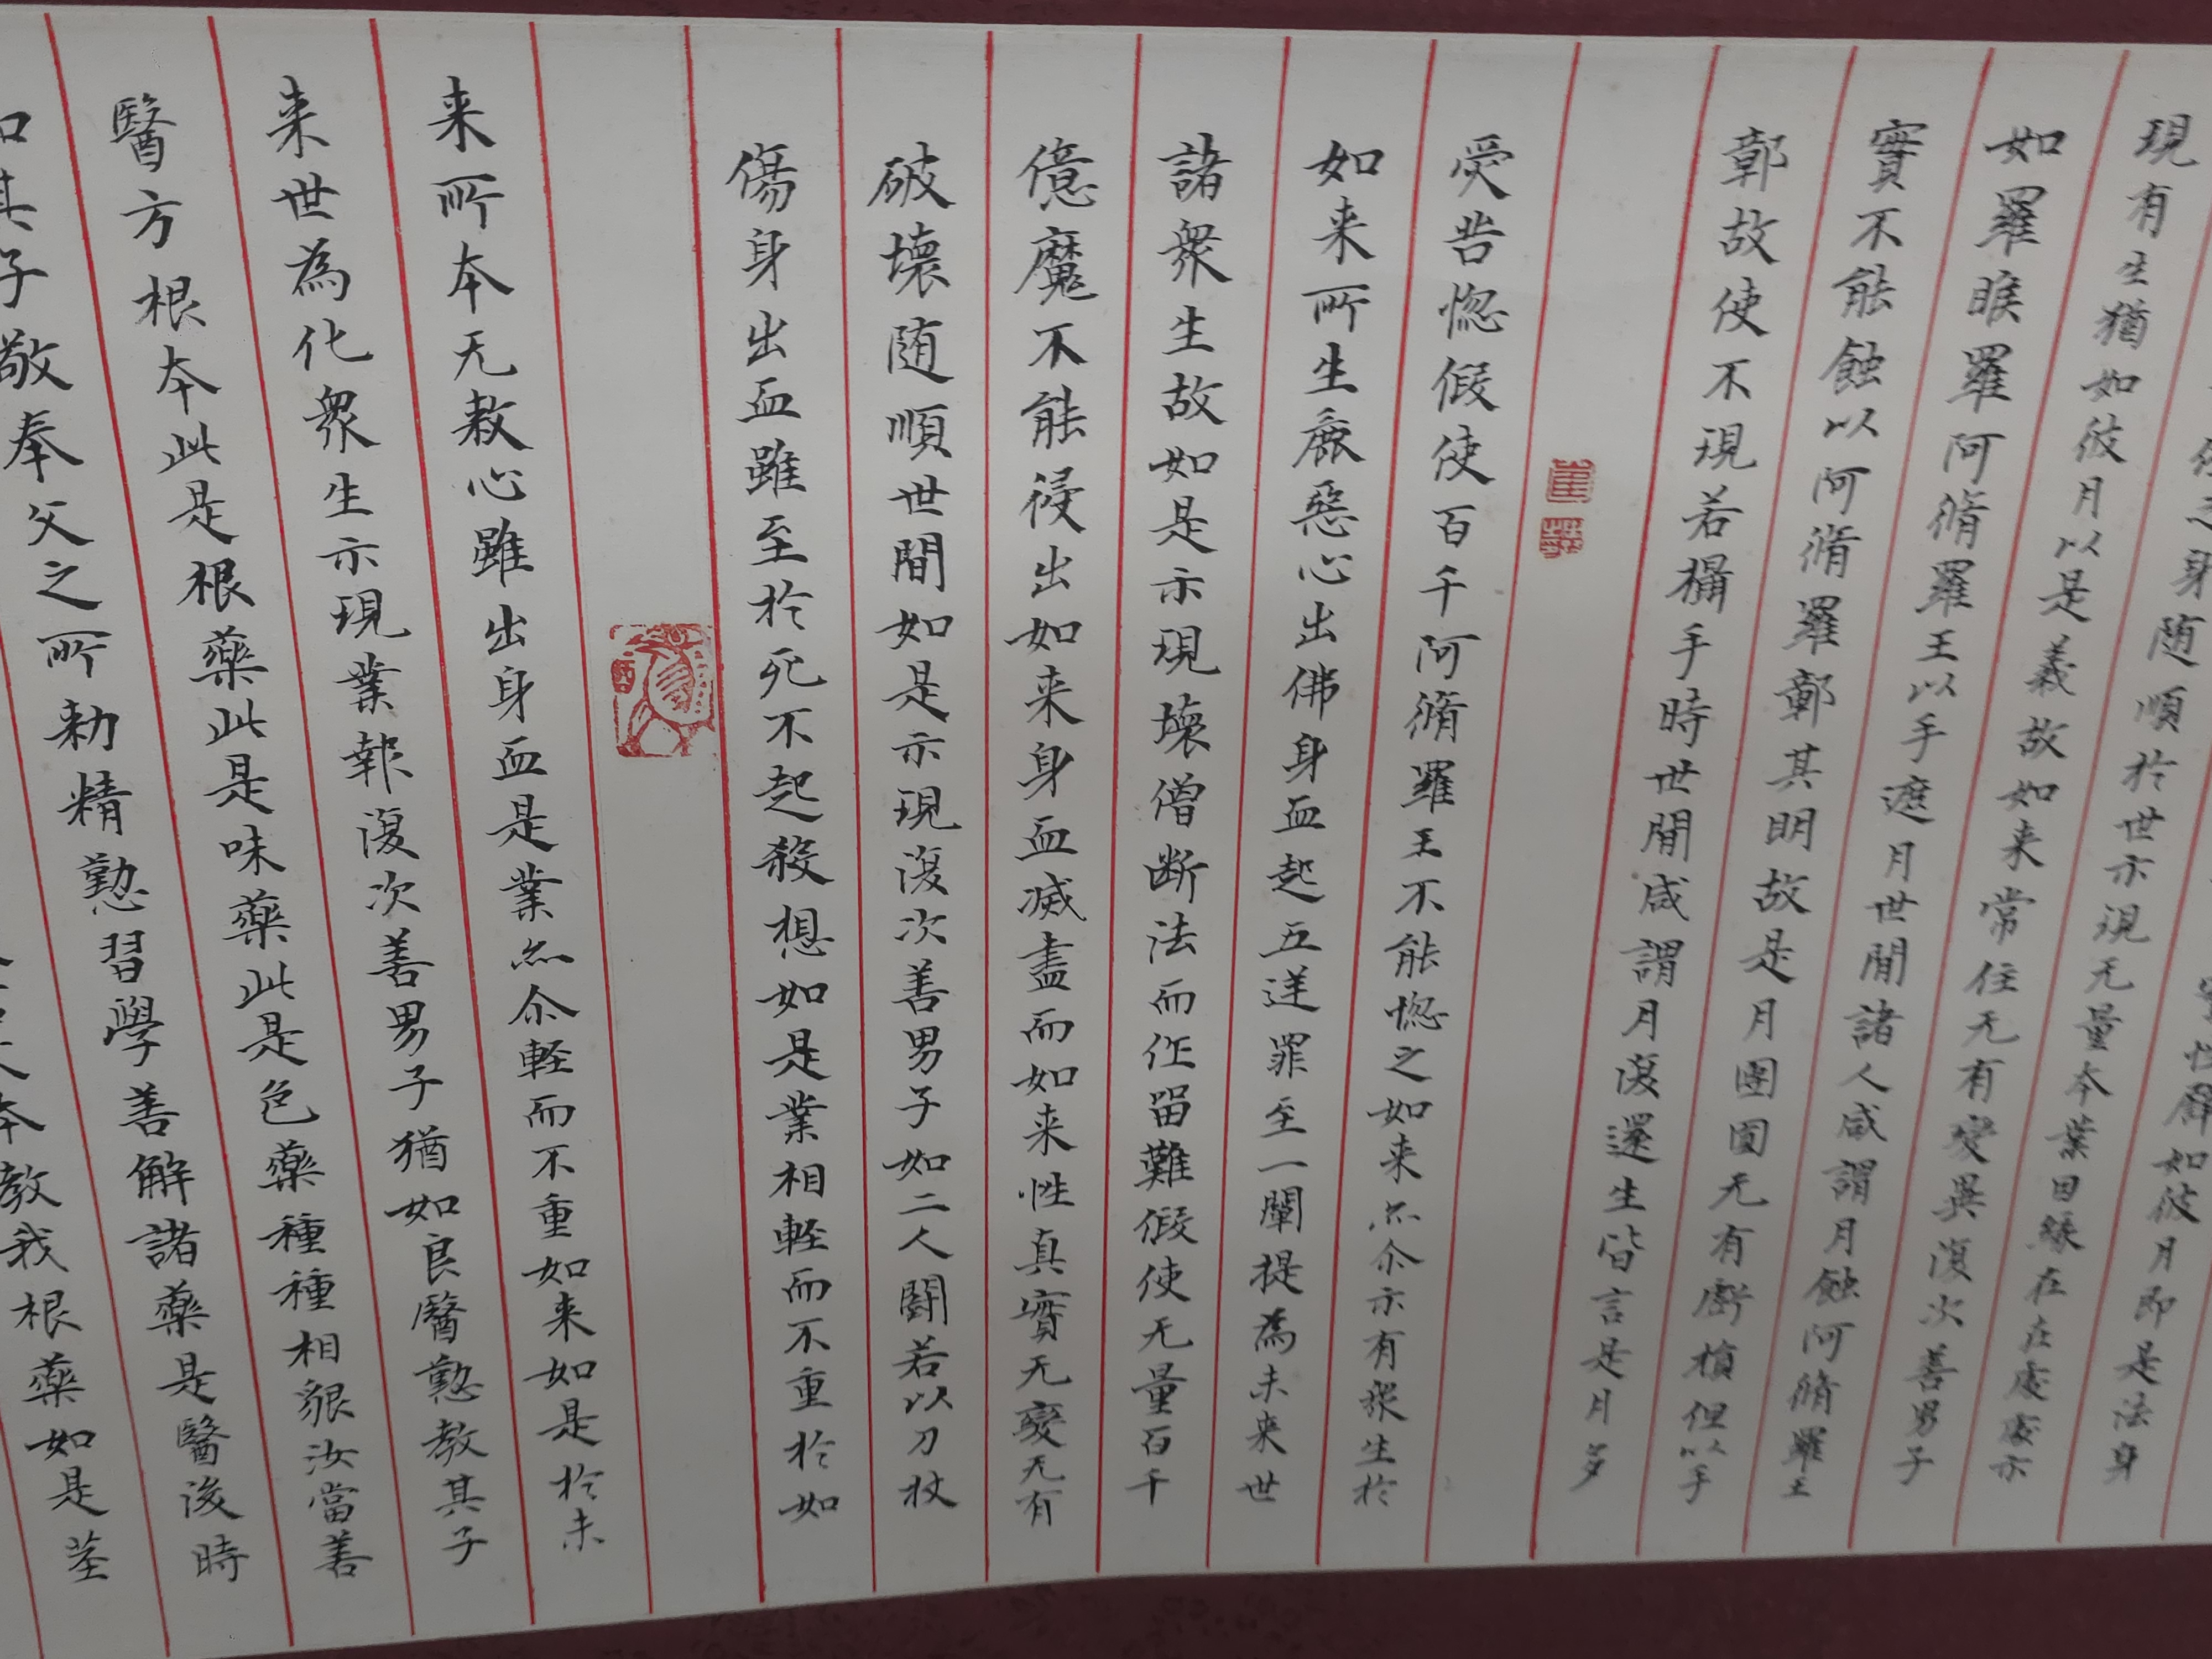 身随順於世亦現无量本業因緣在在處處亦
現有生猶如彼月以是義故如来常住无有變異復次善男子
如羅睺羅阿脩羅王以手遮月世間諸人咸謂月蝕阿脩羅王
實不能蝕以阿脩羅鄣其明故是月團圓无有虧損但以手
鄣故使不現若攝手時世間咸謂月復還生皆言是月多
受苦惚假使百千阿脩羅王不能惚之如来亦尒示有衆生於
如来所生麁惡心出佛身血起五逆罪至一闡提為未来世
諸衆生故如是示現壞僧断法而作留難假使无量百千
億魔不能侵出如来身血减盡而如来性真實无變无有
破壞随順世間如是示現復次善男子如二人鬪若以刀杖
傷身出血雖至於死不起殺想如是業相軽而不重於如
来所本无煞心雖出身血是業亦尒軽而不重如来如是於未
来世為化衆生示現業報復次善男子猶如良醫懃教其子
醫方根本此是根藥此是味藥此是色藥種種相貌汝當善
知其子敬奉父之所勑精懃習學善解諸藥是醫後時
本教我根藥如是莖